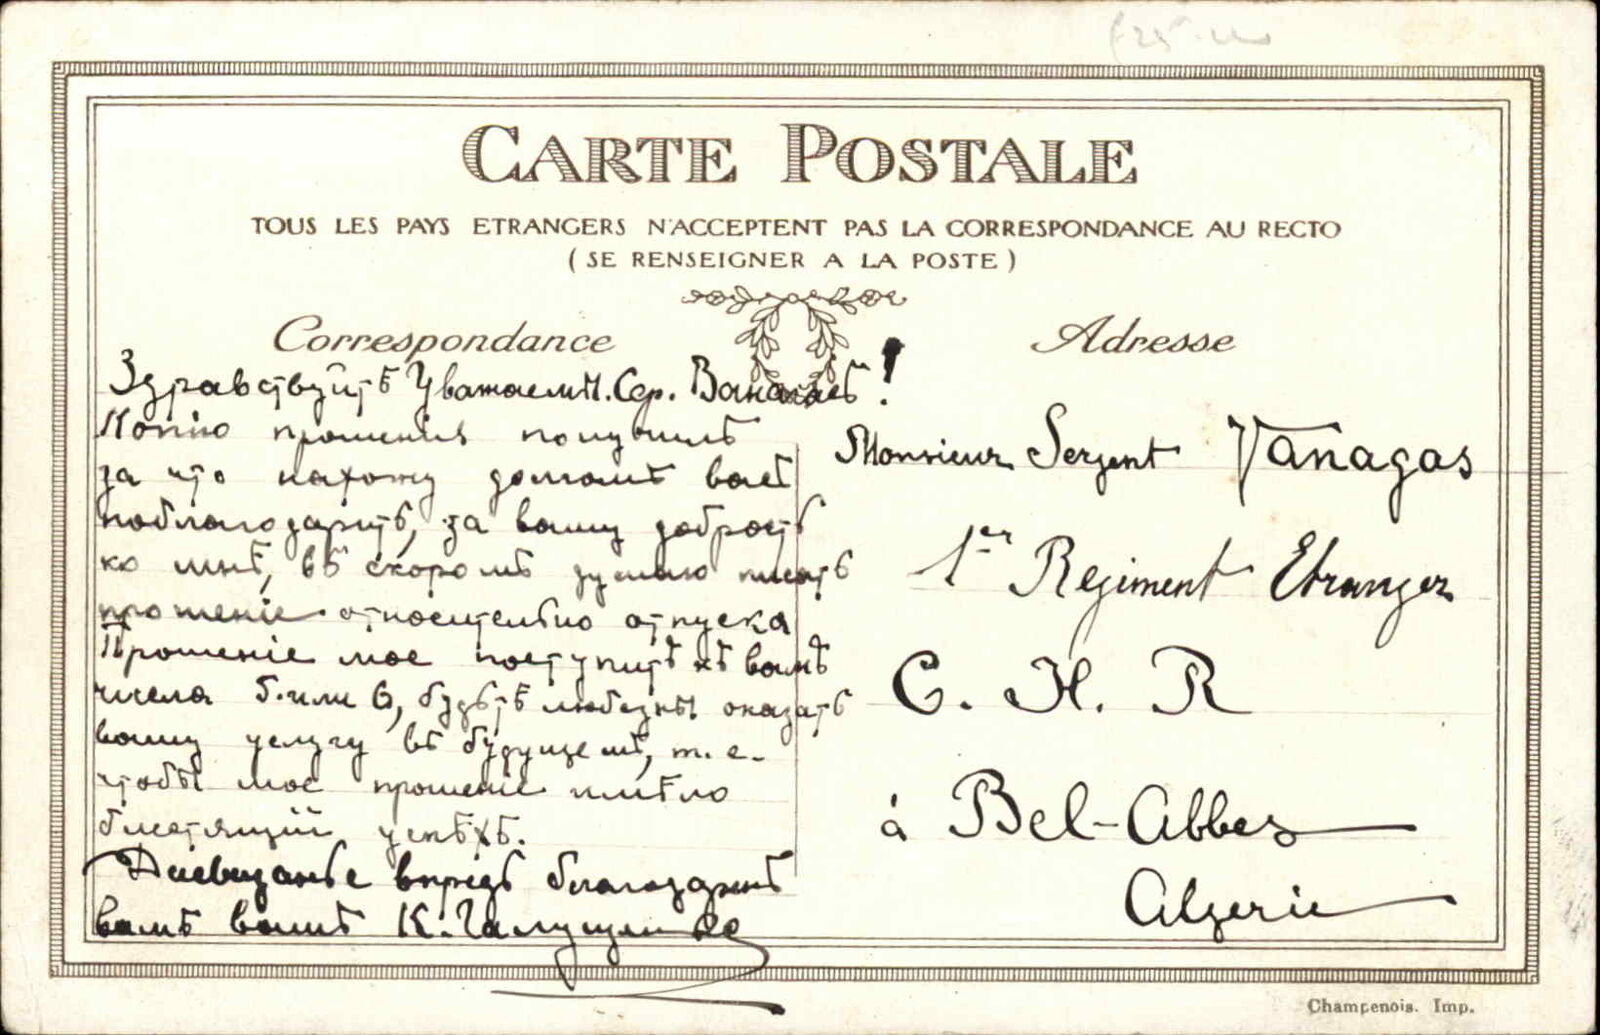 CARTE POSTALE
TOUS LES PAYS ETRANGERS N'ACCEPTENT PAS LA CORRESPONDANCE AU RECTO
(SE RENSEIGNER A LA POSTE)
Correspondance
Здравствуйтѣ Уважаемы. Сер. Ванагасъ!
Копію прошенія получилъ
за что нахожу долгомъ васъ
поблагодарить, за вашу доброть
ко мнѣ, въ скоромъ думаю писать
прошеніе относительно отпуска
Прошеніе мое поступитъ къ вамъ
числа 5. или 6, будьтѣ любезны оказать
вашу услугу въ будущемъ, т. е.
чтобы мое прошеніе имѣло
блестящій успѣхъ.
Досвиданье впредь благодарный
вамъ вашъ К. Галущенко
Adresse
Monsieur Serjent Vanagas
1er Regiment Etranger
C. H. R
à Bel-Abbes
Algerie
Champenois. Imp.